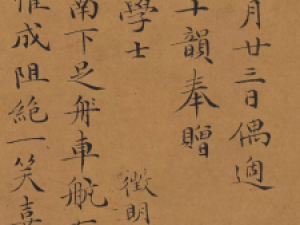 月廿三日偶過
十韻奉贈
學士
徵明
南下足舟車航
惟成阻絶一笑喜